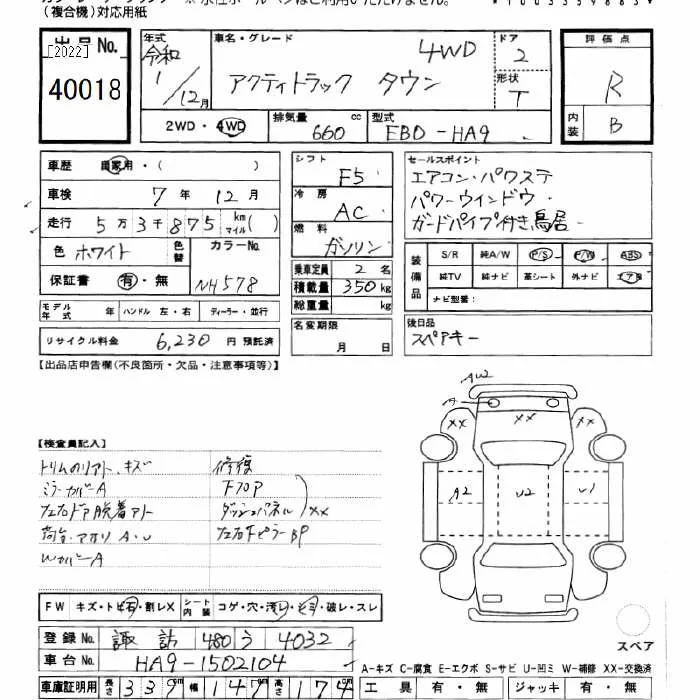 (複合機)対応用紙
出品No.
[2022]
40018
年式 令和 1/12月
車名・グレード 4WD
アクティトラック タウン
ドア 2
形状 T
2WD・4WD
排気量 660 cc
型式 EBD-HA9
評価点 R
内装 B
車歴 自家用・( )
車検 7年12月
走行 5万3千875 km マイル( )
色 ホワイト 色替
カラーNo. NH578
保証書 有・無
モデル年式 年 ハンドル 左・右 ディーラー・並行
リサイクル料金 6,230円 預託済
シフト F5
冷房 AC
燃料 ガソリン
乗車定員 2名
積載量 350kg
総重量 kg
名変期限 月 日
セールスポイント
エアコン・パワステ
パワーウインドウ
ガードパイプ付き鳥居
装備品 S/R 純A/W P/S P/W ABS
純TV 純ナビ 革シート 外ナビ エアB
ナビ型番:
後日品
スペアキー
【出品店申告欄(不良箇所・欠品・注意事項等)】
【検査員記入】
ミラーカバーA
左右ドア脱着アト
荷台・アオリ A・U
WカバーA
修復
ダッシュパネル XX
左右下ピラーBP
AW2
A
XX XX XX
A2 U2 U1
スペア
FW キズ・トビ石・割レX
シート内装 コゲ・穴・汚レ・ヒヨ・破レ・スレ
登録No. 諏訪 480 う 4032
車台No. HA9-1502104
車庫証明用 長さ 339cm 幅 147cm 高さ 174cm
A-キズ C-腐食 E-エクボ S-サビ U-凹ミ W-補修 XX-交換済
工具 有・無 ジャッキ 有・無